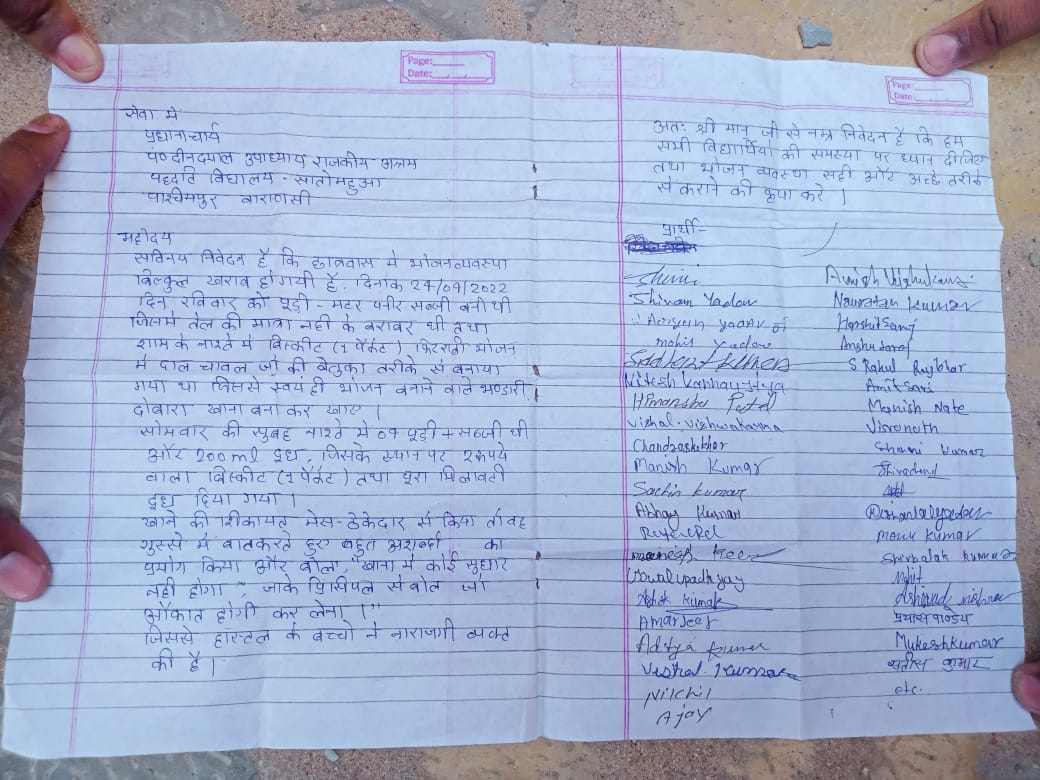 Page:
Date:
सेवा में
प्रधानाचार्य
पं० दीनदयाल उपाध्याय राजकीय आश्रम
पद्धति विद्यालय - सातोमहुआ
वाराणसी
महोदय
सविनय निवेदन है कि छात्रावास में भोजन व्यवस्था
बिल्कुल खराब हो गयी है. दिनांक 24/04/2022
दिन रविवार को पूड़ी - मटर पनीर सब्जी बनी थी
जिसमें तेल की मात्रा नहीं के बराबर थी तथा
शाम के नास्ते में बिस्कीट (1 पैकेट) फिर रात्री भोजन
में दाल चावल जो की बेतुका तरीके से बनाया
गया था जिससे स्वयं ही भोजन बनाने वाले भण्डारी
दोबारा खाना बना कर खाए।
सोमवार की सुबह नास्ते में 04 पूड़ी + सब्जी थी
और 200 ml दूध, जिसके स्थान पर 2 रूपये
वाला बिस्कीट (1 पैकेट) तथा पूरा मिलावटी
दूध दिया गया।
खाने की शिकायत मेस-ठेकेदार से किया तो वह
गुस्से में बात करते हुए बहुत अशब्दों का
प्रयोग किया और बोला, "खाना में कोई सुधार
नहीं होगा, जाके प्रिंसिपल से बोल जो
औकात होगी कर लेना।"
जिससे हास्टल के बच्चों ने नाराजगी व्यक्त
की है।
Page:
Date:
अतः श्री मान् जी से नम्र निवेदन है कि हम
सभी विद्यार्थियों की समस्या पर ध्यान दीजिए
तथा भोजन व्यवस्था सही और अच्छे तरीके
से कराने की कृपा करे।
प्रार्थी-
Shivam Yadav
Aariyan yadav
mohit yadav
Siddhant kumar
Nitesh
Himanshu Patel
Vishal. Vishwakarma
Chandrashekhar
Manish Kumar
Sachin kumar
Abhay Kumar
Ujwal upadhyay
Ashok Kumar
Amarjeet
Aditya kumar
Vishal. Kumar
Nikhil
Ajay
Navratan kumar
Harshit Saroj
Anshu Saroj
Rahul Rajbhar
Amit
Manish
Vishvnath
Kumar
Monu Kumar
Shivpalak kumar
Mohit
प्रयास पाण्डेय
Mukesh kumar
सतीस कुमार
etc.